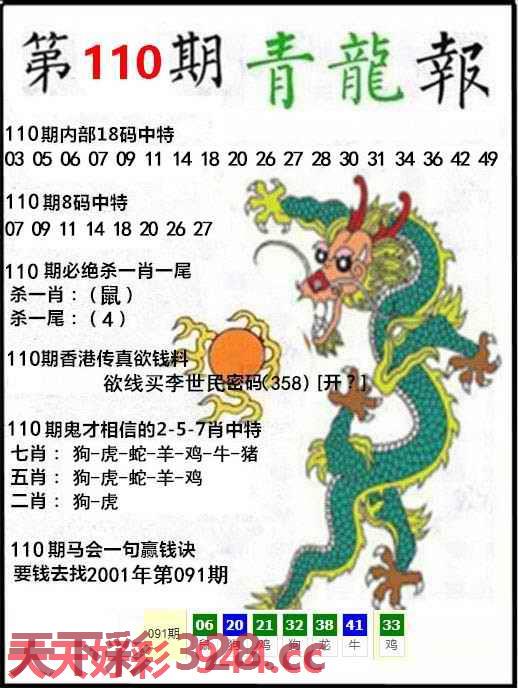 第110期青龍報
110期内部18码中特
03 05 06 07 09 11 14 18 20 26 27 28 30 31 34 36 42 49
110期8码中特
07 09 11 14 18 20 26 27
110期必绝杀一肖一尾
杀一肖：（鼠）
杀一尾：（4）
110期香港传真欲钱料
欲线买李世民密码(358) [开？]
110期鬼才相信的2-5-7肖中特
七肖：狗-虎-蛇-羊-鸡-牛-猪
五肖：狗-虎-蛇-羊-鸡
二肖：狗-虎
110期马会一句赢钱诀
要钱去找2001年第091期
091期 06 20 21 32 38 41 33
鼠 狗 鸡 狗 龙 牛 鸡
天下彩
天天好彩
.cc